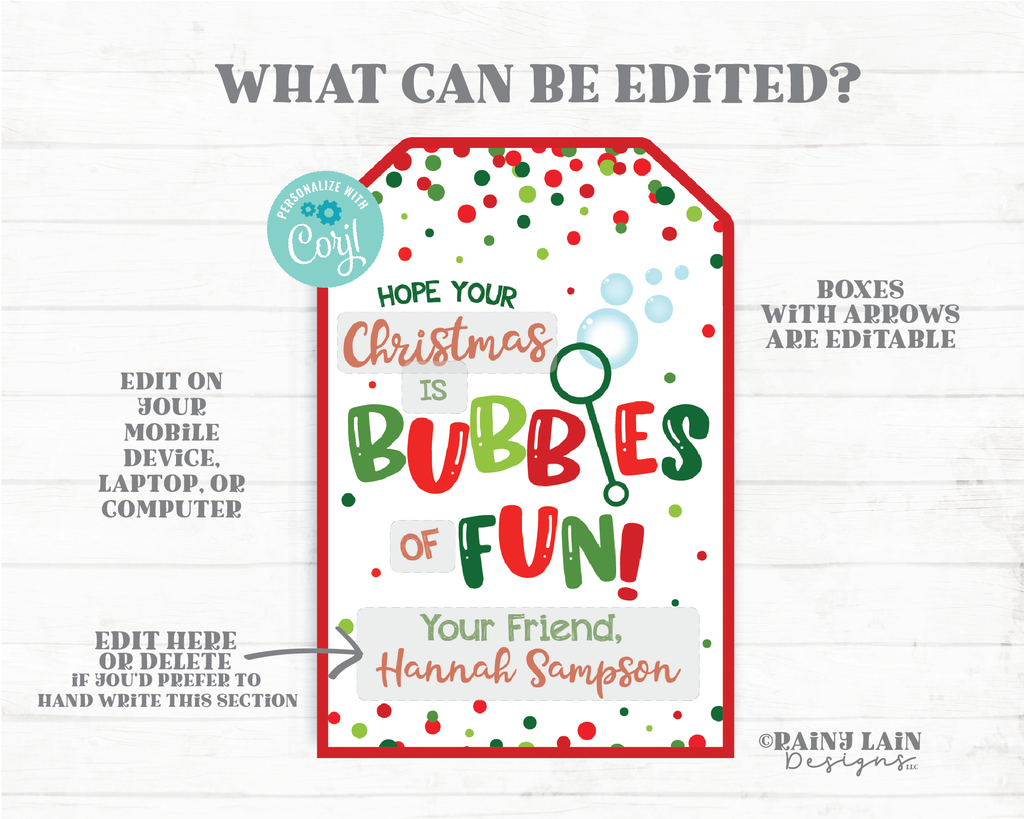 WHAT CAN BE EDITED?
PERSONALIZE WITH
Corjl
HOPE YOUR
Christmas
IS
BUBBLES
OF FUN!
Your Friend,
Hannah Sampson
BOXES
WITH ARROWS
ARE EDITABLE
EDIT ON
YOUR
MOBILE
DEVICE,
LAPTOP, OR
COMPUTER
EDIT HERE
OR DELETE
IF YOU'D PREFER TO
HAND WRITE THIS SECTION
©RAINY LAIN
Designs LLC